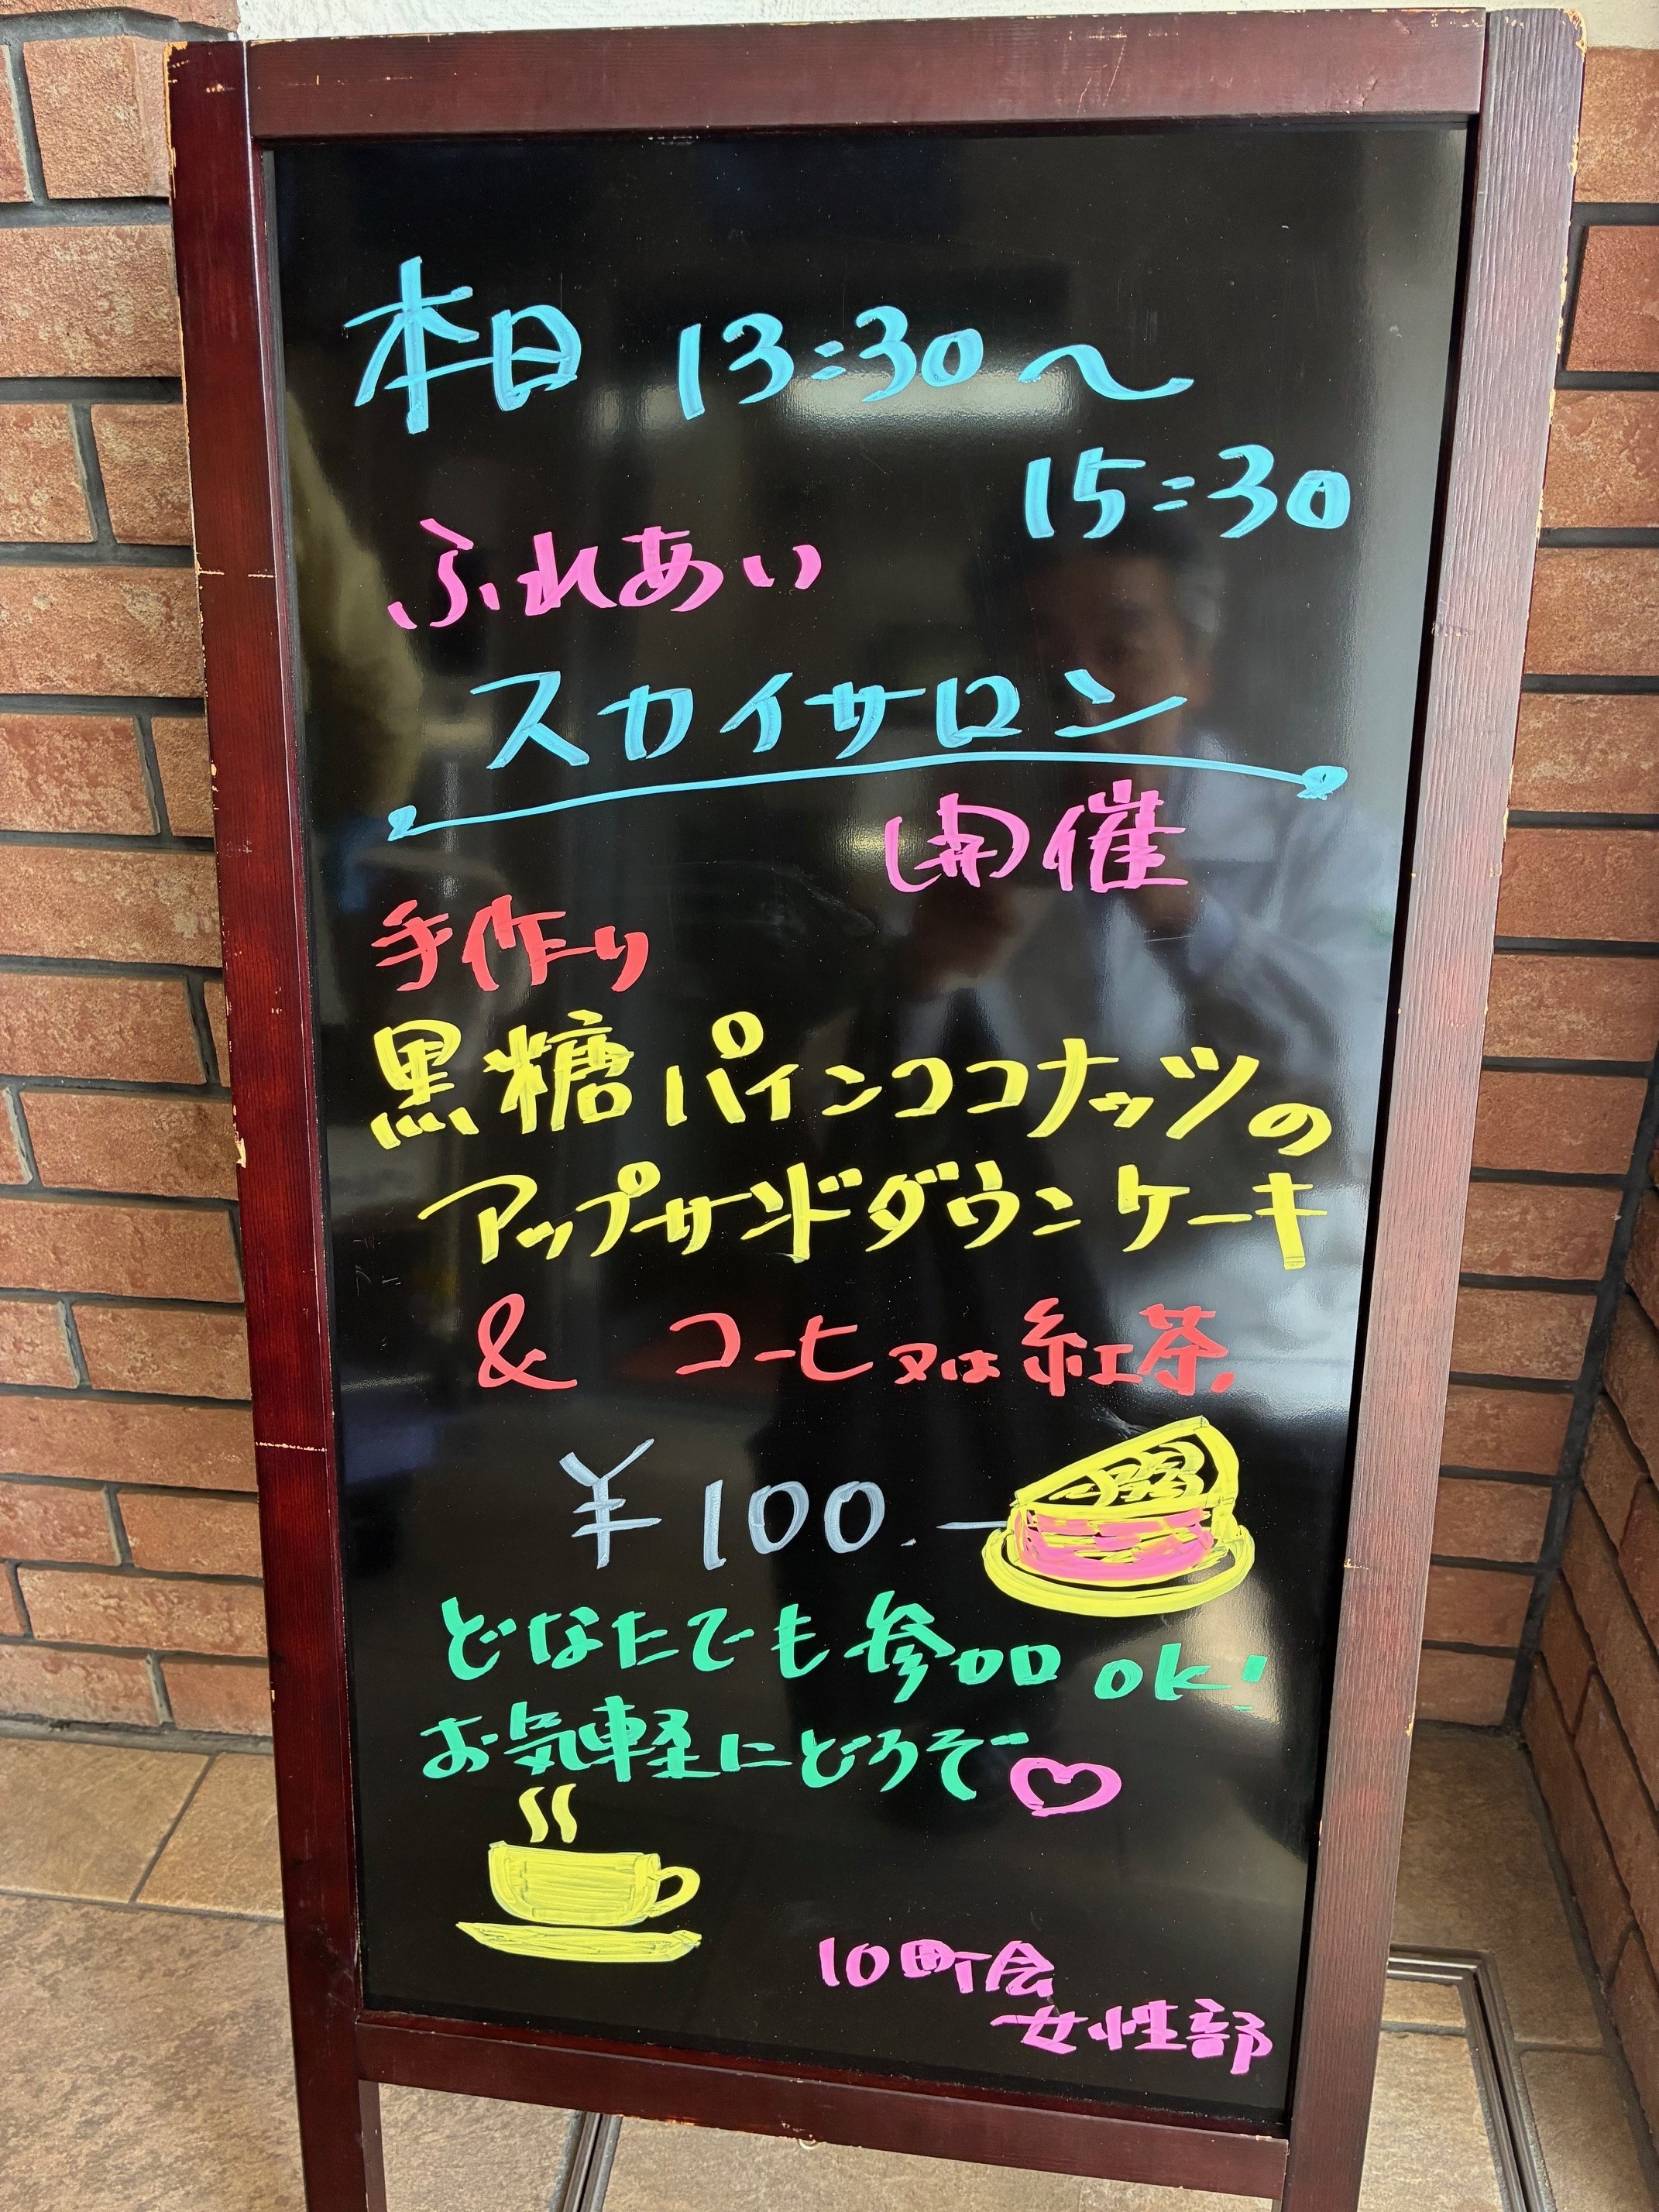 本日 13:30〜
15:30
ふれあい
スカイサロン
開催
手作り
黒糖パインココナッツの
アップサンドダウンケーキ
& コーヒ又は紅茶.
¥100.—
どなたでも参加ok!
お気軽にどうぞ♡
10町会
女性部